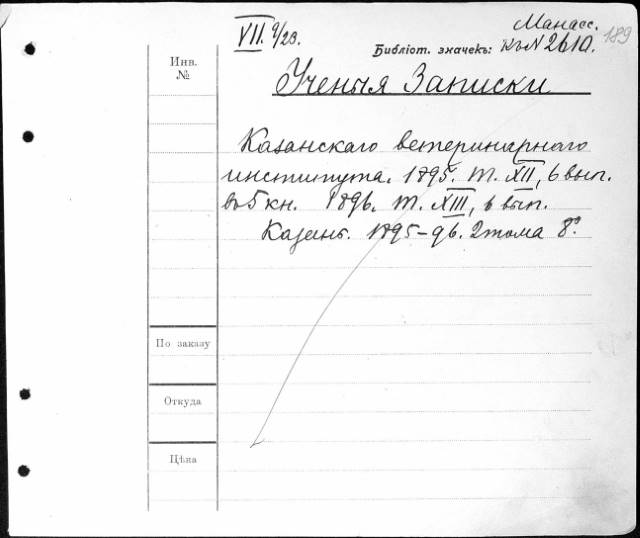 Манасс.
VII. 9/28. Библіот. значекъ: КъN2610. 189
Инв.
№
Ученыя Записки
Казанскаго ветеринарного
института. 1895. т. XII, 6 вып.
въ 5 кн. 1896. т. XIII, 6 вып.
Казань. 1895-96. 2 тома 8°.
По заказу
Откуда
Цѣна